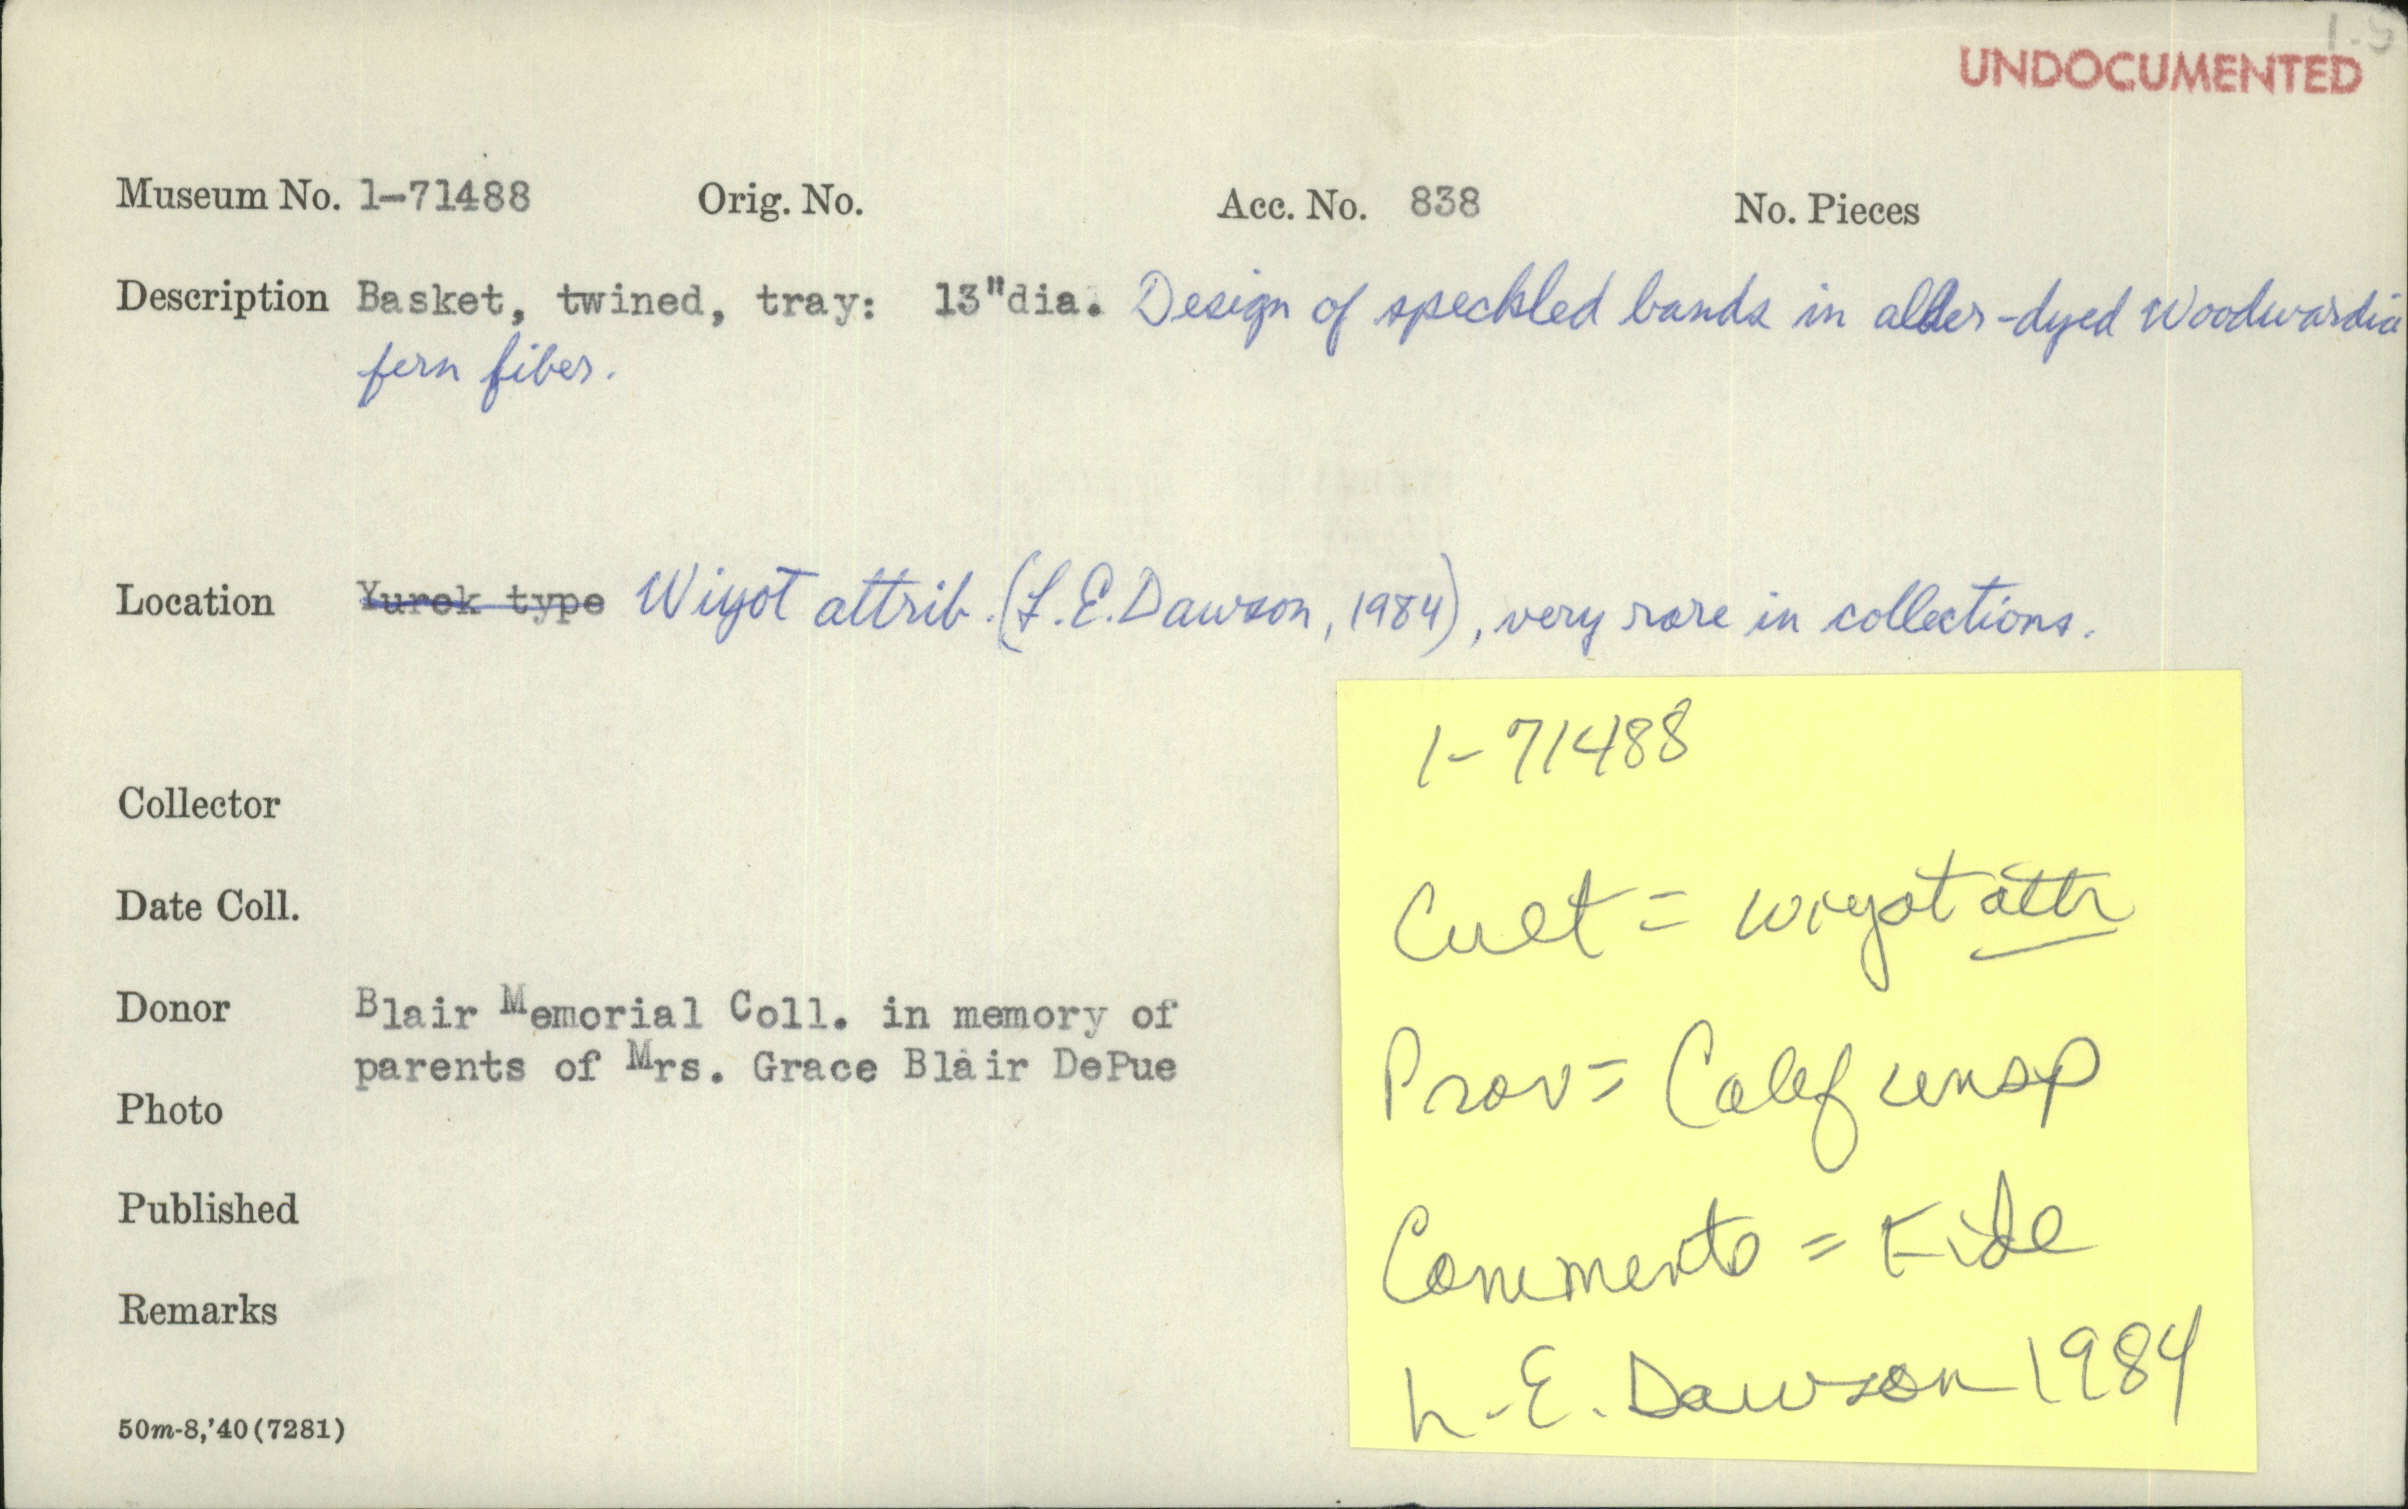 UNDOCUMENTED
Museum No. 1-71488 Orig. No. Acc. No. 838 No. Pieces
Description Basket, twined, tray: 13"dia. Design of speckled bands in alder-dyed Woodwardia
fern fiber.
Location Yurok type Wiyot attrib. (L.E. Dawson, 1984), very rare in collections.
Collector
Date Coll.
Donor Blair Memorial Coll. in memory of
parents of Mrs. Grace Blair DePue
Photo
Published
Remarks
50m-8,'40(7281)
1-71488
Cult = Wiyot attr
Prov = Calif unsp
Comments =
L.E. Dawson 1984